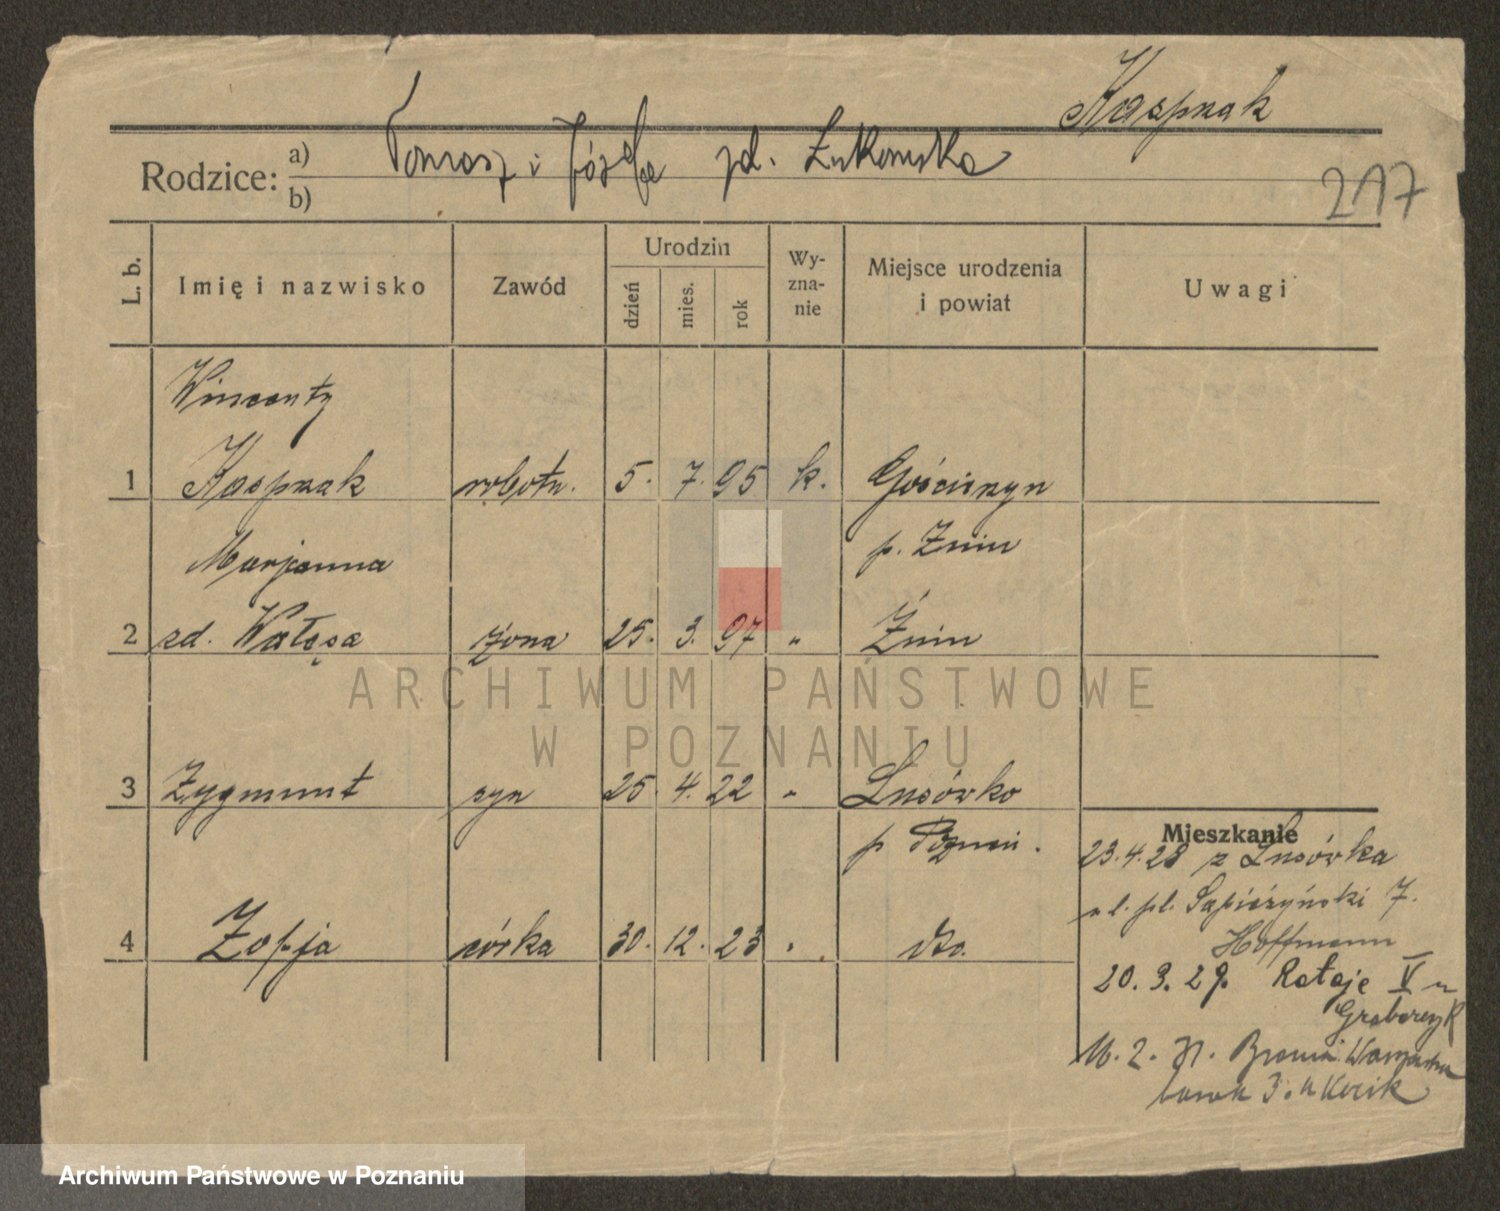 Kasprzak
Rodzice: a) Tomasz i Józefa zd. Łukowska
b)
217
L. b.
Imię i nazwisko
Zawód
Urodzin
dzień
mies.
rok
Wy-
zna-
nie
Miejsce urodzenia
i powiat
Uwagi
Wincenty
1 Kasprzak robotn. 5. 7. 95 k. Gościeszyn
Marjanna p. Żnin
2 zd. Wałęsa żona 25. 3. 97 " Żnin
ARCHIWUM PAŃSTWOWE
W POZNANIU
3 Zygmunt syn 25. 4. 22 " Lusówko
p Poznań.
Mieszkanie
23.4.28 z Lusówka
ul. pl. Sapieżyński 7.
Hoffmann
4 Zofja córka 30. 12. 23 " dto.
20. 9. 29. Rataje V u
16. 2. 31.
3. u
Archiwum Państwowe w Poznaniu